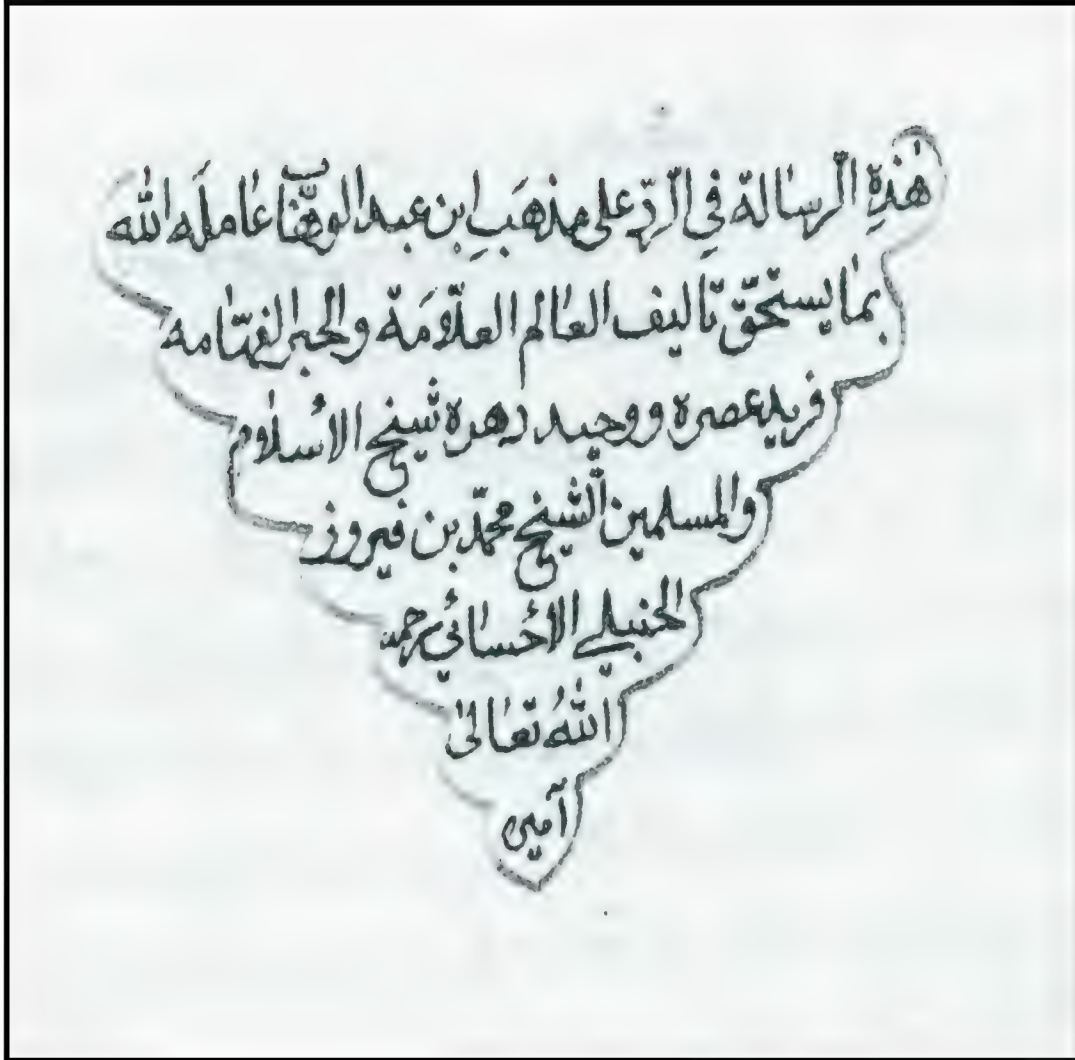 هٰذِهِ الرّسالة فِي الرّدّ على مذهَبِ ابن عبد الوهّاب عامله الله
بما يستحقّ تأليف العالم العلّامَة والحبر الفهّامه
فريد عصره ووحيد دهره شيخ الاسلام
والمسلمين الشيخ محمّد بن فيروز
الحنبلي الاحسائي رحمه
اللهُ تعالىٰ
آمين